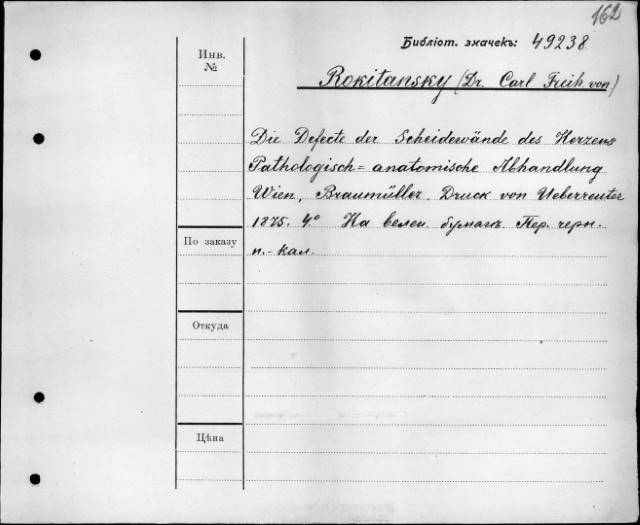 162
Библіот. значекъ: 49238
Инв.
№
Rokitansky (Dr. Carl Freih. von)
Die Defecte der Scheidewände des Herzens
Pathologisch= anatomische Abhandlung
Wien, Braumüller. Druck von Ueberreuter
1875. 4.° На велен. бумагѣ. Пер. черн.
п.-кал.
По заказу
Откуда
Цѣна